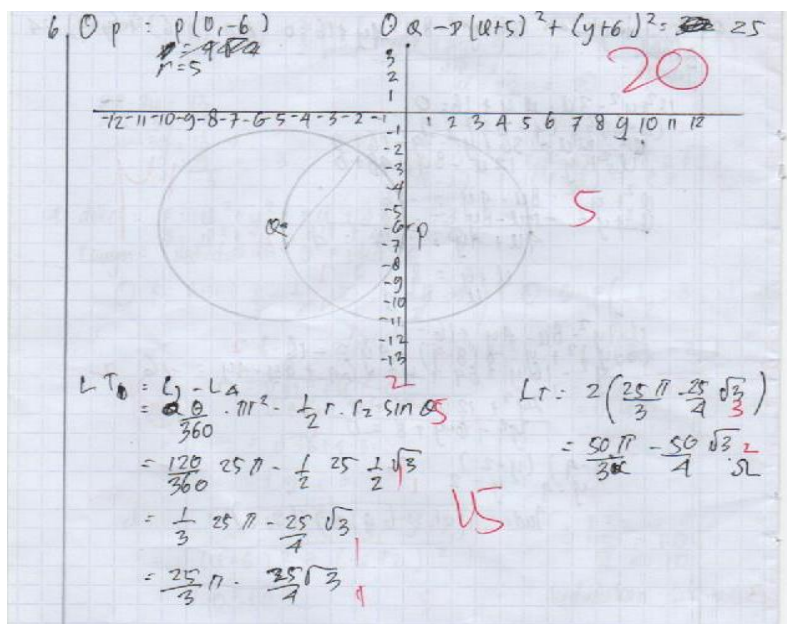 6 ⊙ P : P(0,-6) ⊙ Q → (x+5)² + (y+6)² = 25
r=5
20
3
2
1
-12 -11 -10 -9 -8 -7 -6 -5 -4 -3 -2 -1 1 2 3 4 5 6 7 8 9 10 11 12
-1
-2
-3
-4
-5
-6
-7
-8
-9
-10
-11
-12
-13
Q P
5
2
= θ/360 · πr² - 1/2 r. r2 sin θ 5
= 120/360 25 π - 1/2 25 1/2 √3 1
= 1/3 25 π - 25/4 √3 1
= 25/3 π - 25/4 √3 1
15
LT = 2 (25π/3 - 25/4 √3) 3
= 50π/3 - 50/4 √3 2